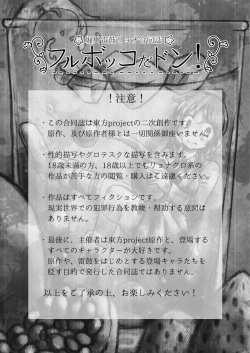 堀川雷鼓リョナ合同誌
フルボッコだドン！
！注意！
・この合同誌は東方projectの二次創作です。
原作、及び原作者様とは一切関係御座いません。
・性的描写やグロテスクな描写を含みます。
18歳未満の方、18歳以上でもリョナグロ系の
作品が苦手な方の閲覧・購入はご遠慮ください。
・作品はすべてフィクションです。
現実世界での犯罪行為を教唆・幇助する意図は
ありません。
・最後に、主催者は東方project原作と、登場する
すべてのキャラクターが大好きです。
原作や、雷鼓をはじめとする登場キャラたちを
貶す目的で発行した合同誌ではありません。
以上をご了承の上、お楽しみください！